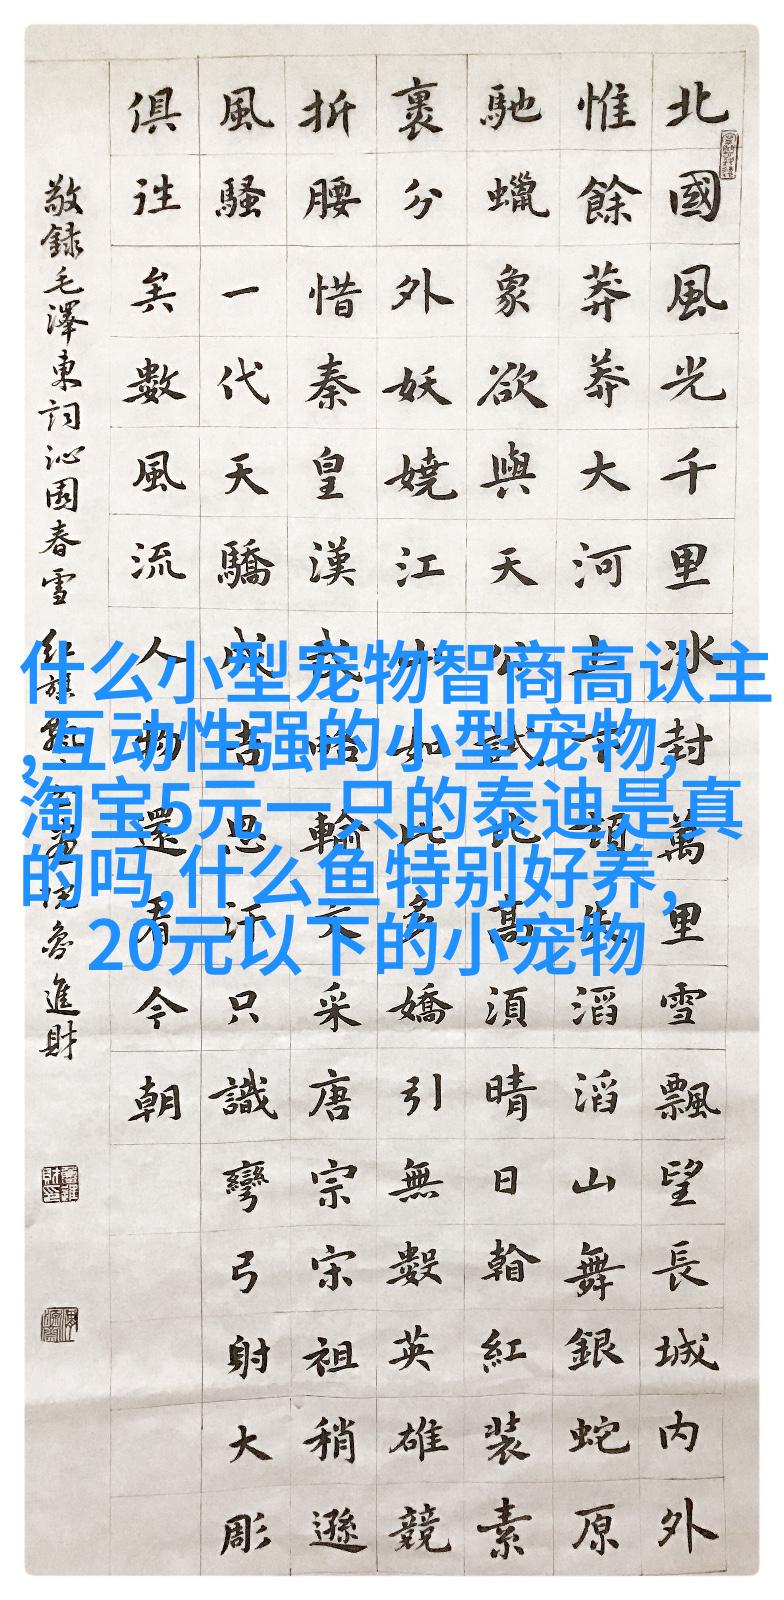 北國風光千里冰封萬里雪飄望長城内外
惟餘莽莽大河上下頓失滔滔山舞銀蛇原
馳蠟象欲與天公試比高湏晴日翰紅装素
裹分外妖嬈江山如此多嬌引無數英雄競
折腰惜秦皇漢武略輸文采唐宗宋祖稍遜
風騷一代天驕成吉思汗只識彎弓射大彫
俱往矣數風流人物還看今朝
敬録毛澤東詞沁園春雪 紅旗魯進財
什么小型宠物智商高认主
,互动性强的小型宠物,
淘宝5元一只的泰迪是真
的吗,什么鱼特别好养,
20元以下的小宠物